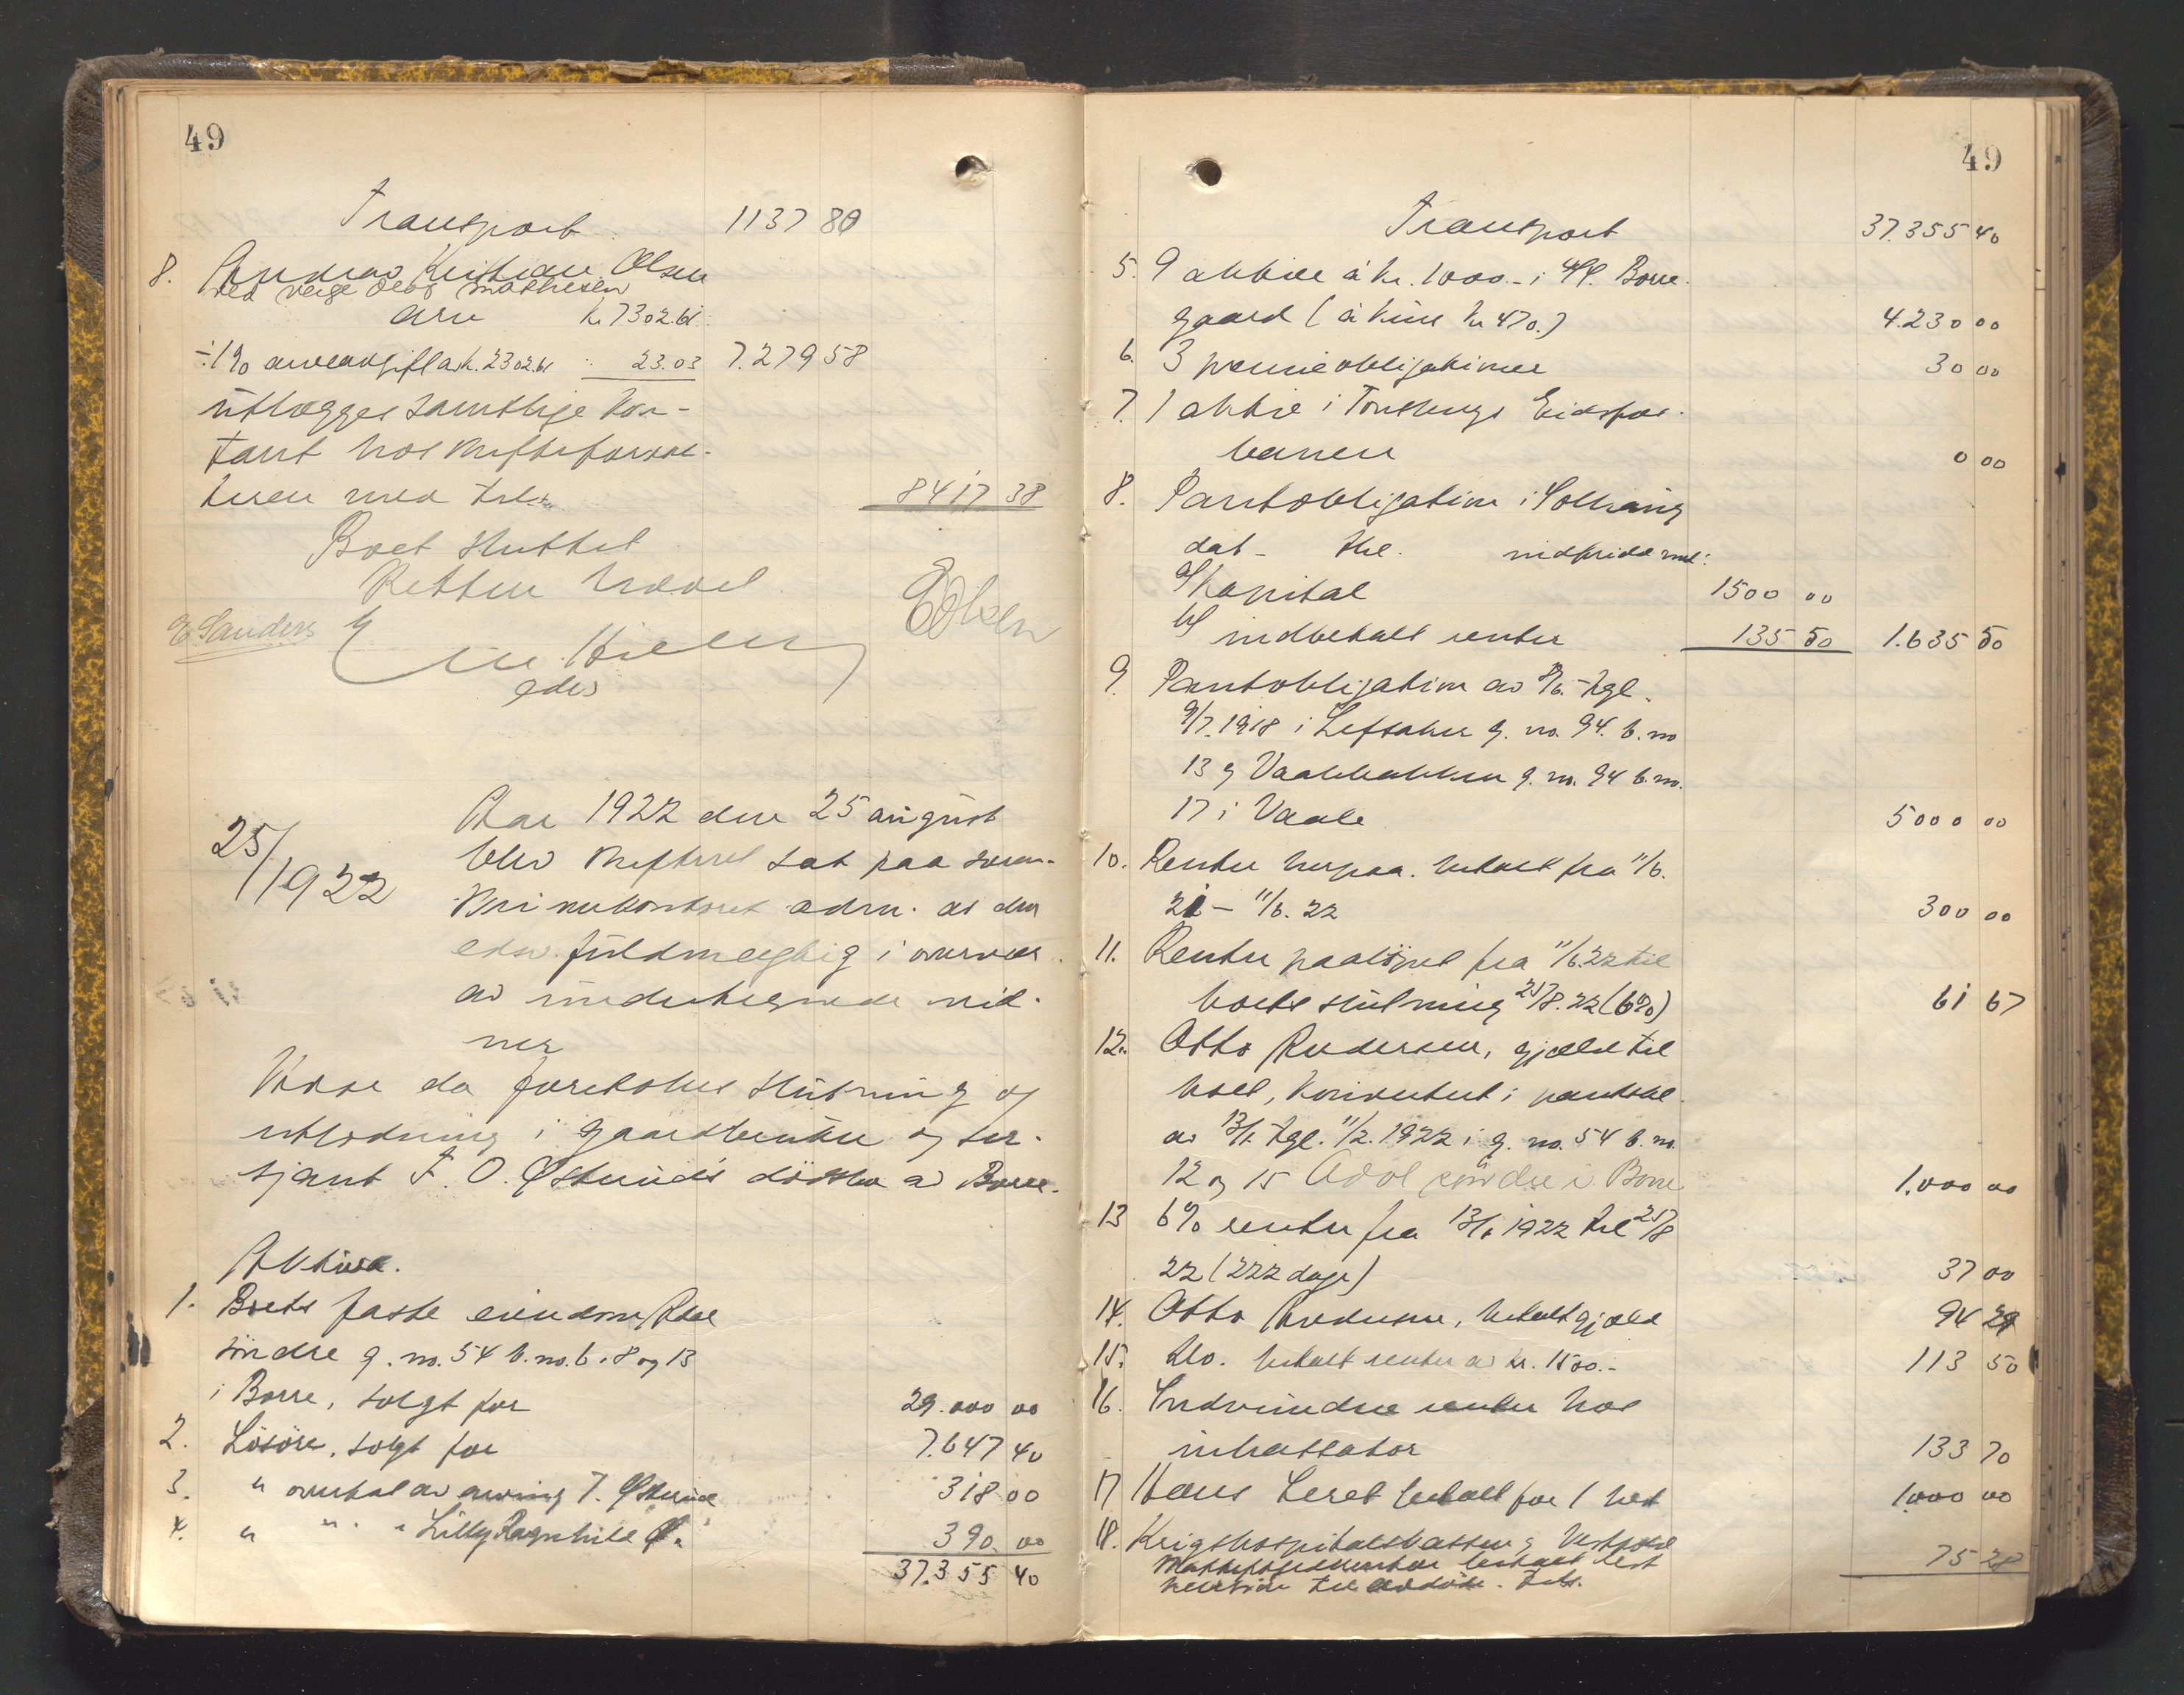 49
Transport 1137 80
8. Andreas Kristian Olsen
ved verge Mathisen
arv kr 7302.61
÷ 1% arveavgift av k. 2302.61 23.03 7.279 58
utlægges samtlige kon-
tant hos skifteforval-
teren med tils. 8417 38
Boet sluttet
Retten hævet
E Sanders
EOlsen
edsv
25/
1922
Aar 1922 den 25 august
blev skifteret sat paa soren-
skriverkontoret adm. av den
edsv. fuldmægtig i overvær
av undertegnede vid-
ner
Var da foretokes slutning og
utlodning i gaardbruker og ser-
sjant F. O. Østunds dødsbo av Borre.
Aktiva.
1. Boets faste eiendom Adal
søndre g. no. 54 b. no. 6, 8 og 13
i Borre, solgt for 29.000 00
2. Løsøre, solgt for 7.647 40
3. " overtat av arving T. Østund 318 00
4. " " " Lilly Ragnhild Ø. 390. 00
37.355 40
49
Transport 37.355 40
5. 9 aktier á kr. 1000.- i A/S. Borre-
gaard (á kurs kr 470.) 4.230 00
6. 3 premieobligationer 30 00
7. 1 aktie i Tønsberg Eidsfos-
banen 0 00
8. Pantobligation i Solhaug
dat - thl. indfridd med:
a/ Kapital 1500 00
b/ indbetalt renter 135 50 1.635 50
9. Pantobligation av 11/6. - tgl.
9/7. 1918 i Lefsaker g. no. 94. b. no
13 og Vaalebakken g. no. 94 b. no.
17 i Vaale 5000 00
10. Renter herpaa. betalt fra 11/6.
21 - 11/6. 22 300 00
11. Renter paaløpet fra 11/6. 22 til
boets slutning 25/8. 22 (6%) 61 67
12. Otto Andersen, gjæld til
boet, konvertert i pantobl.
av 13/1 tgl. 11/2. 1922 i g. no. 54 b. no.
12 og 15 Adal søndre i Borre 1.000 00
13 6% renter fra 13/1 1922 til 25/8
22 (222 dage) 37 00
14. Otto Andersen, betalt gjæld 94 29
15. do. betalt renter av kr. 1500.- 113 50
16. Indvundne renter hos
inkassator 133 70
17 Hans Leret betalt for 1 hest 1000 00
18. Krigshospitalskassen g Vestfold
betalt rest
pension til avdøde. tils. 75 28